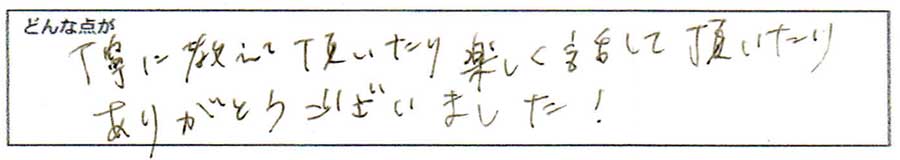 どんな点が
丁寧に教えて頂いたり楽しく話して頂いたり
ありがとうございました！